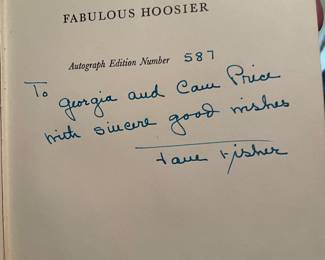 FABULOUS HOOSIER
Autograph Edition Number 587
To
Georgia and Cam Price
with sincere good wishes
Jane Fisher